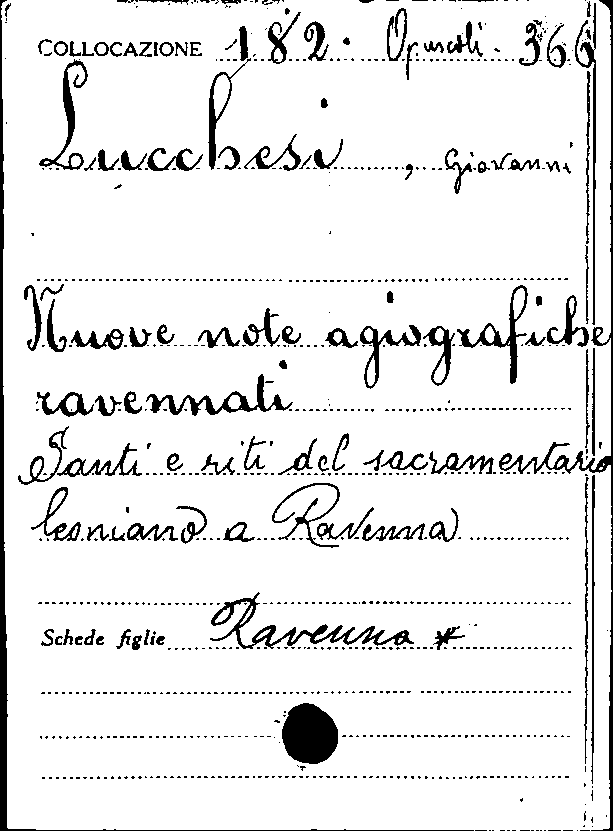 COLLOCAZIONE 182. Opuscoli. 366
Lucchesi, Giovanni
Nuove note agiografiche
ravennati
Santi e riti del sacramentario
leoniano a Ravenna
Schede figlie Ravenna *